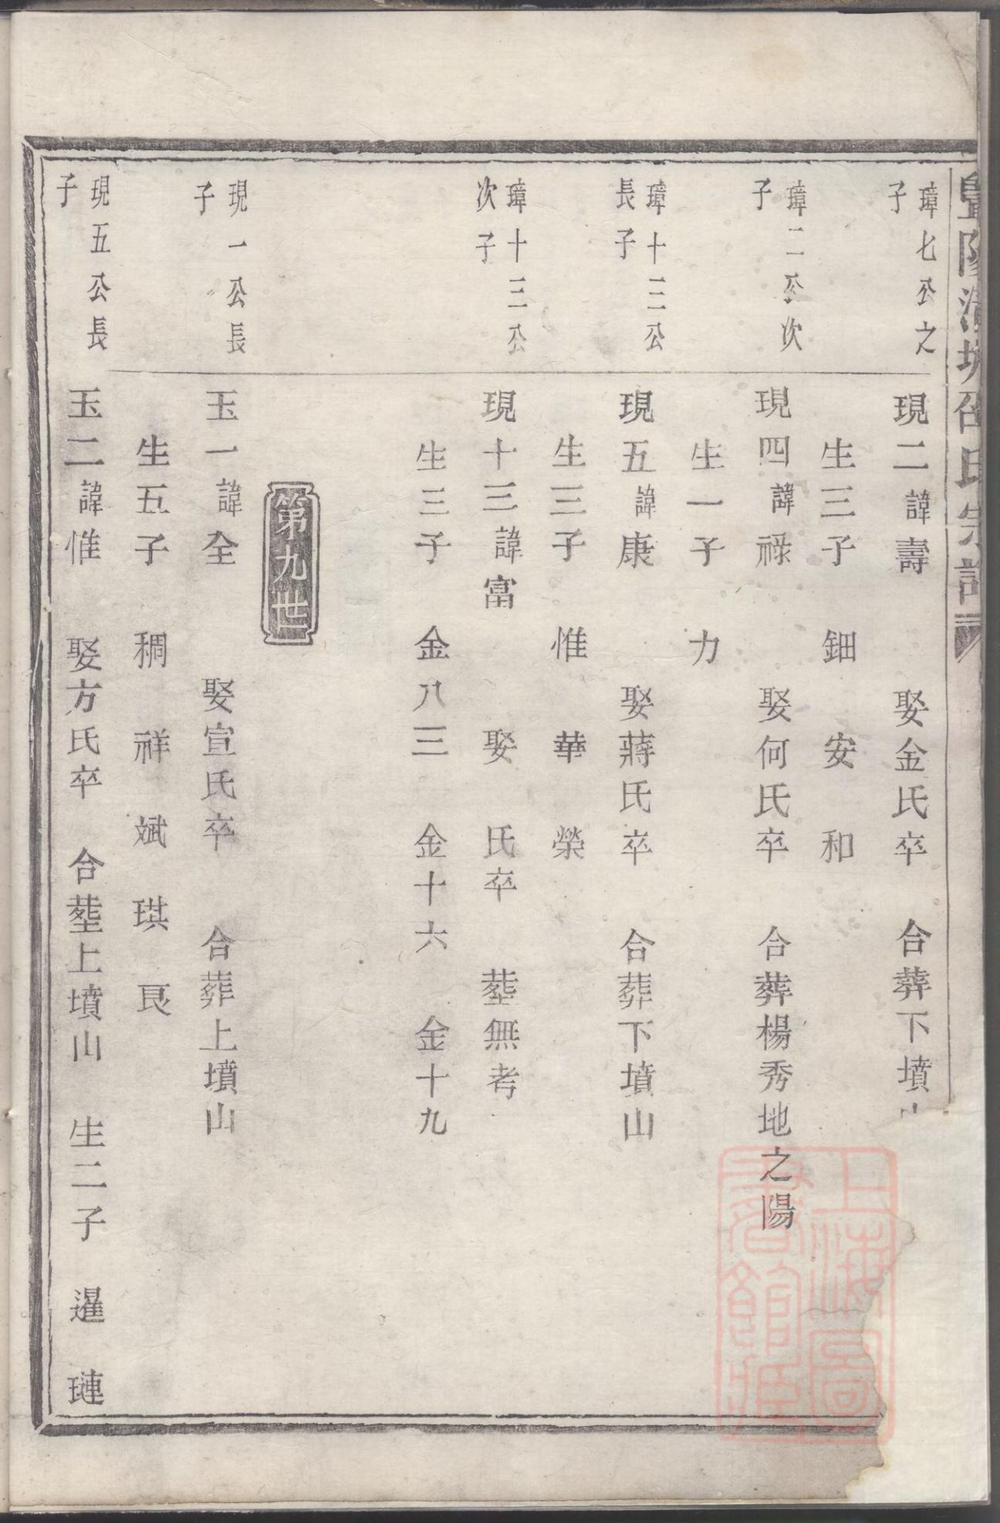 暨陽邵氏宗譜
璋七公之子
現二諱壽 娶金氏卒 合葬下墳
生三子 鈿 安 和
璋二公次子
現四諱祿 娶何氏卒 合葬楊秀地之陽
生一子 力
璋十三公長子
現五諱康 娶蔣氏卒 合葬下墳山
生三子 惟 華 榮
璋十三公次子
現十三諱富 娶 氏卒 塟無考
生三子 金八三 金十六 金十九
第九世
現一公長子
玉一諱全 娶宣氏卒 合葬上墳山
生五子 稠 祥 斌 琪 艮
現五公長子
玉二諱惟 娶方氏卒 合塟上墳山 生二子 暹 璉
上海圖書館藏